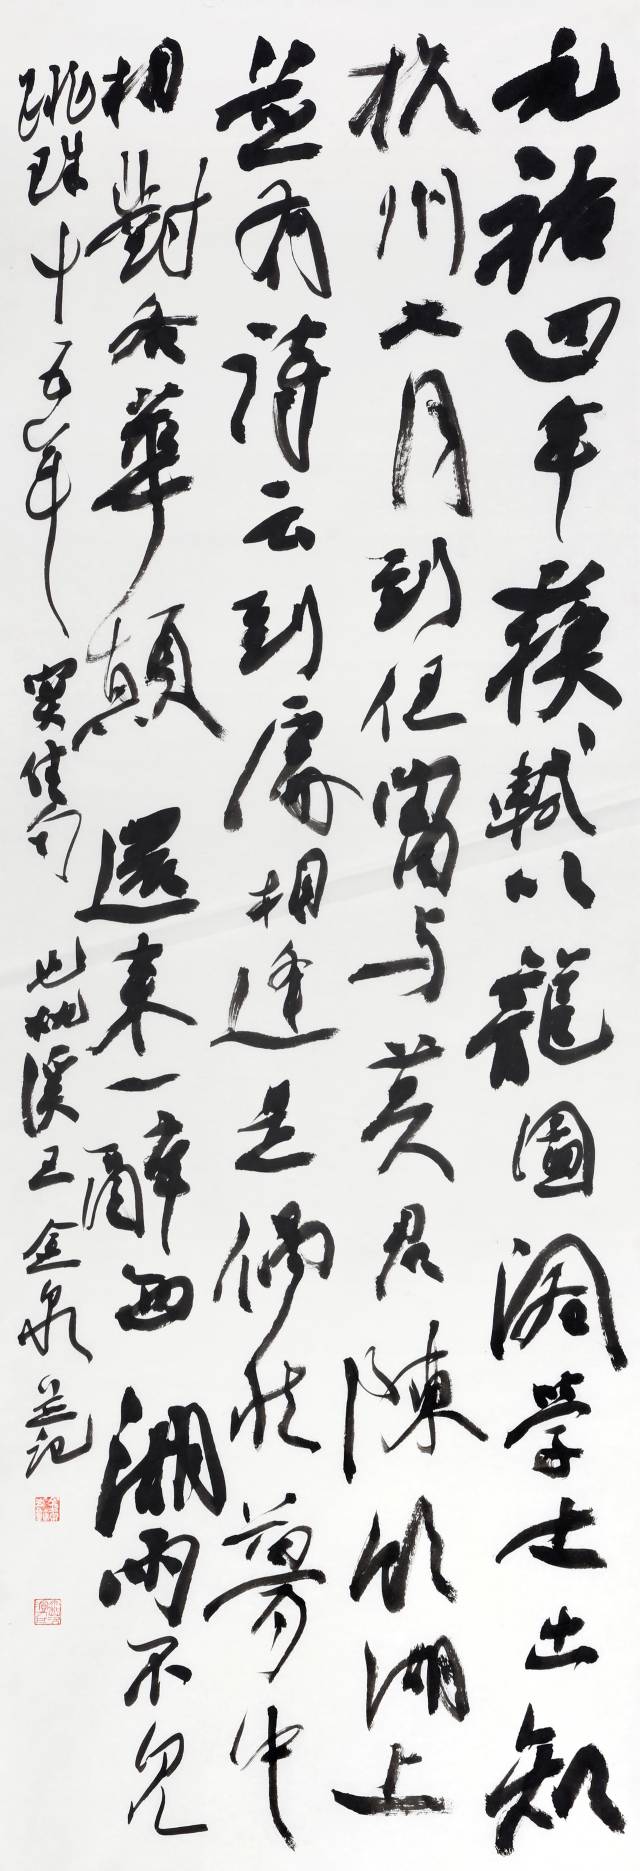 元祐四年蘇軾以龍圖閣學士出知
杭州七月到任嘗與莫君陳飲湖上
並有詩云到處相逢是偶然夢中
相對各華顛還來一醉西湖雨不見
跳珠十五年實佳句也桃溪王金泉並記